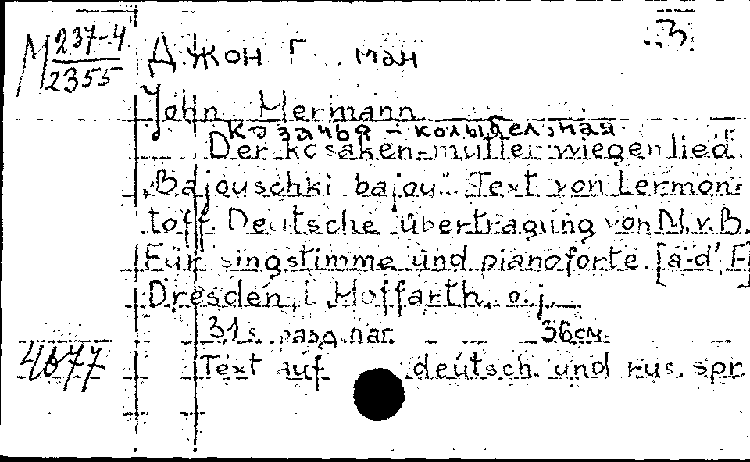 М 237-4
2355
3
Джон Г ман
John Hermann
Казачья - колыбельная
Der kosaken-mutter wiegenlied
"Bajouschki bajou". Text von Lermon-
toff. Deutsche übertragung von N. v. B.
Für singstimme und pianoforte. [a-d', F]
Dresden, Hoffarth, o. j.
31 s. разд. паг. 36 см.
4677
Text auf deutsch. und rus. spr.